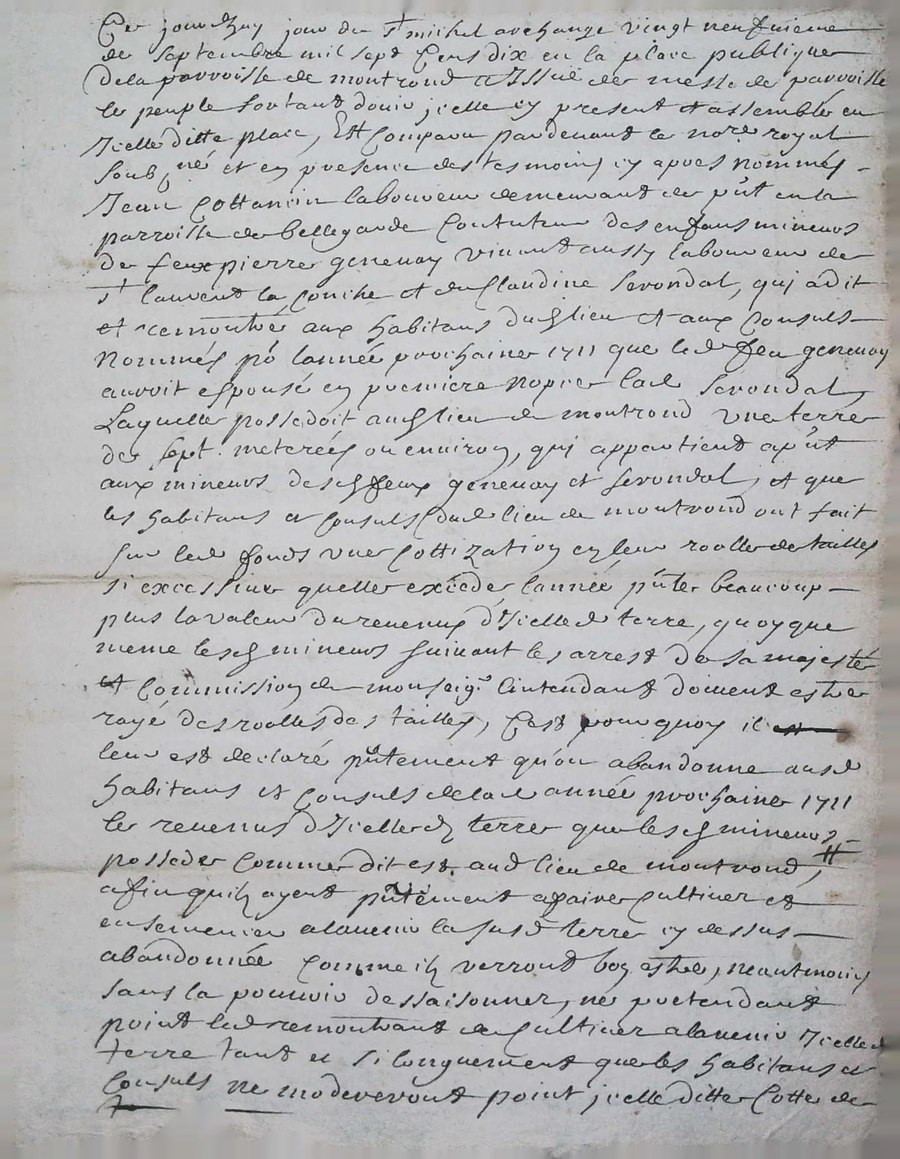 Cejourdhuy jour de st michel archange vingt neufvieme
de septembre mil sept Cens dix en la place publique
dela parroisse de montrond a Issüe de messe de parroisse
le peuple sortant douir jcelle cy present et assemblé en
Icelle ditte place, Est Comparu pardevant le nore royal
soubné et en presence des tesmoins cy apres nommés
Jean Cottancin laboureur demeurant de pnt en la
parroisse de bellegarde Contuteur des enfans mineurs
de feu pierre genevay vivant aussy laboureur de
st laurent la Conche et de Claudine Servondal, qui a dit
et remontré aux habitans dud lieu et aux Consuls
Nommés po lannée prochaine 1711 que led feu genevay
auroit espousé en premiere nopce lad Servondal
Laquelle possedoit aud lieu de montrond vne terre
de sept meterées ou environ, qui appartient a pnt
aux mineurs desd feux genevay et servondal, et que
les habitans et Consuls dud lieu de montrond ont fait
sur led fonds vne Cottization en leur roolle de tailles
si excessive quelle excede lannée pnte beaucoup
plus la valeur du revenu d'Icelle d terre, quoy que
meme lesd mineurs suivant les arrest de sa majesté
et Commission de monseigr lintendant doivent estre
rayé des roolles des tailles, C'est pourquoy il
leur est declaré pntement qu'on abandonne aud
habitans et Consuls de lad année prochaine 1711
le revenus d'Icelle d terre que lesd mineurs
possede Comme dit est aud lieu de montrond,
afin quils ayent pntement a faire Cultiver et
ensemencer alavenir la susd terre cy dessus
abandonnée Comme ils verront bon estre, neantmoins
sans la pouvoir dessaisonner, ne pretendant
point led remontrant de Cultiver alavenir Icelle d
terre tant et si longuement que les habitans et
Consuls ne modereront point jcelle ditte Cotte de